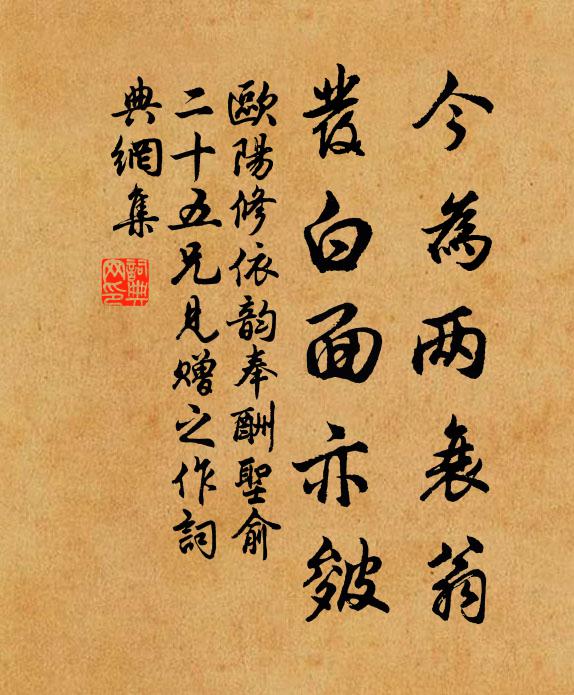 今為两衰翁
發白面亦皴
歐陽修依韵奉酬聖俞
二十五兄見贈之作詞
典網集
詞典網印